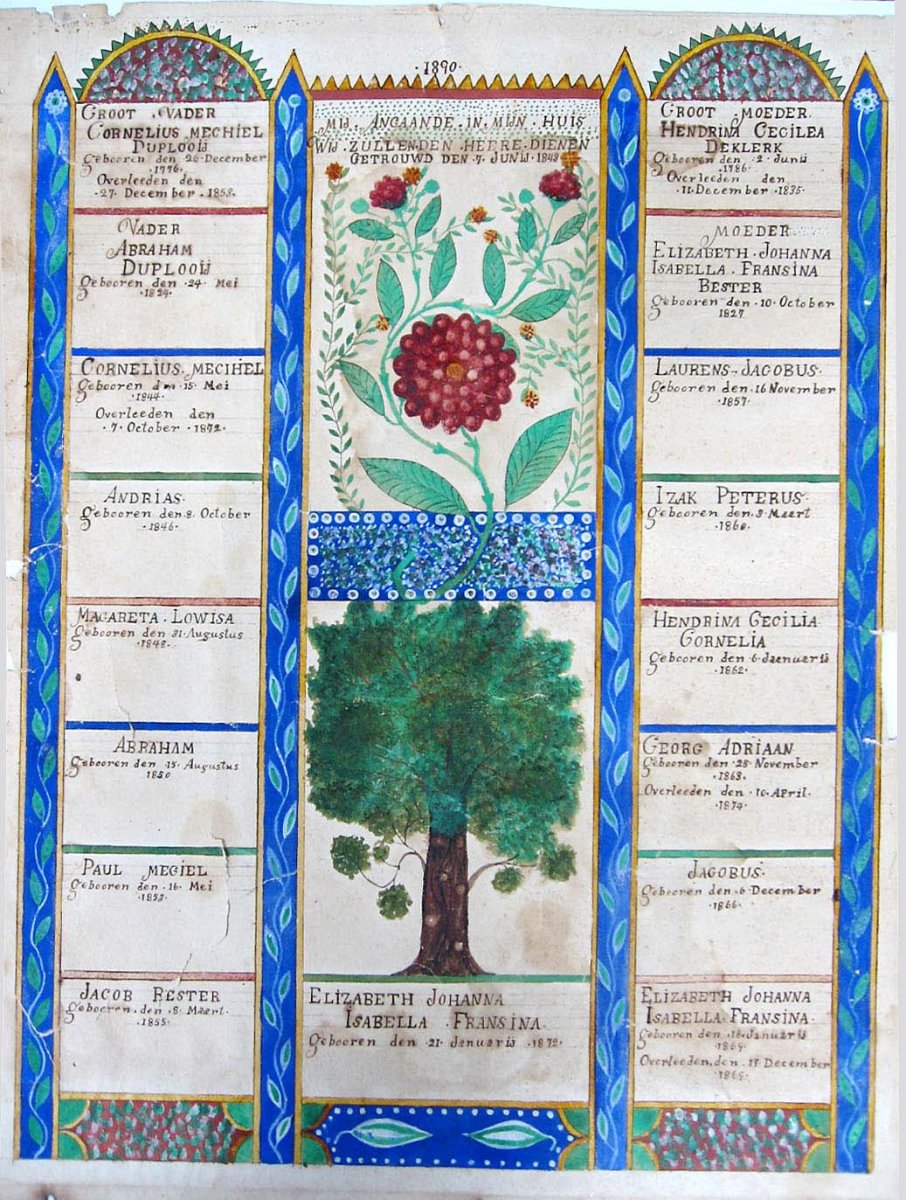 ·1890·
GROOT VADER
CORNELIUS MECHIEL
DUPLOOIJ
Gebooren den 26 December
·1776·
Overleeden den
27· December ·1853·
VADER
ABRAHAM
DUPLOOIJ
Gebooren den ·24· Mei
·1824·
CORNELIUS· MECIHEL
Gebooren den ·15· Mei
·1844·
Overleeden den
·7· October ·1872·
ANDRIAS·
Gebooren den ·8· October
·1846·
MAGARETA· LOWISA
Gebooren den 31· Augustus
·1848·
ABRAHAM
Gebooren den ·15· Augustus
1850
PAUL MEGIEL
Gebooren den ·16· Mei
·1853·
JACOB BESTER
Gebooren· den ·8· Maert·
·1855·
MIJ· ANGAANDE· IN· MIJN· HUIS
WIJ· ZULLEN· DEN· HEERE· DIENEN
GETROUWD DEN ·7· JUNIJ ·1843
ELIZABETH JOHANNA
ISABELLA ·FRANSINA·
Gebooren den ·21· Januarij ·1872·
GROOT MOEDER·
HENDRINA CECILEA
DEKLERK
Gebooren den ·2· Junij
·1786·
Overleeden den
·11· December ·1835·
MOEDER
ELIZABETH· JOHANNA
ISABELLA· FRANSINA
BESTER
Gebooren den ·10· October
1827
LAURENS· JACOBUS·
Gebooren den ·16 November
·1857·
IZAK PETERUS·
Gebooren den ·3· Maart
·1860·
HENDRINA CECILIA·
CORNELIA
Gebooren den ·6· Jaenuarij
·1862·
GEORG ADRIAAN
Gebooren den ·25· November
·1863·
Overleeden den ·10· April·
·1874·
JACOBUS·
Gebooren den ·6· December
·1866·
ELIZABETH JOHANNA
ISABELLA· FRANSINA·
Gebooren den ·18· Januarij
·1869·
Overleeden· den ·17· December
·1869·